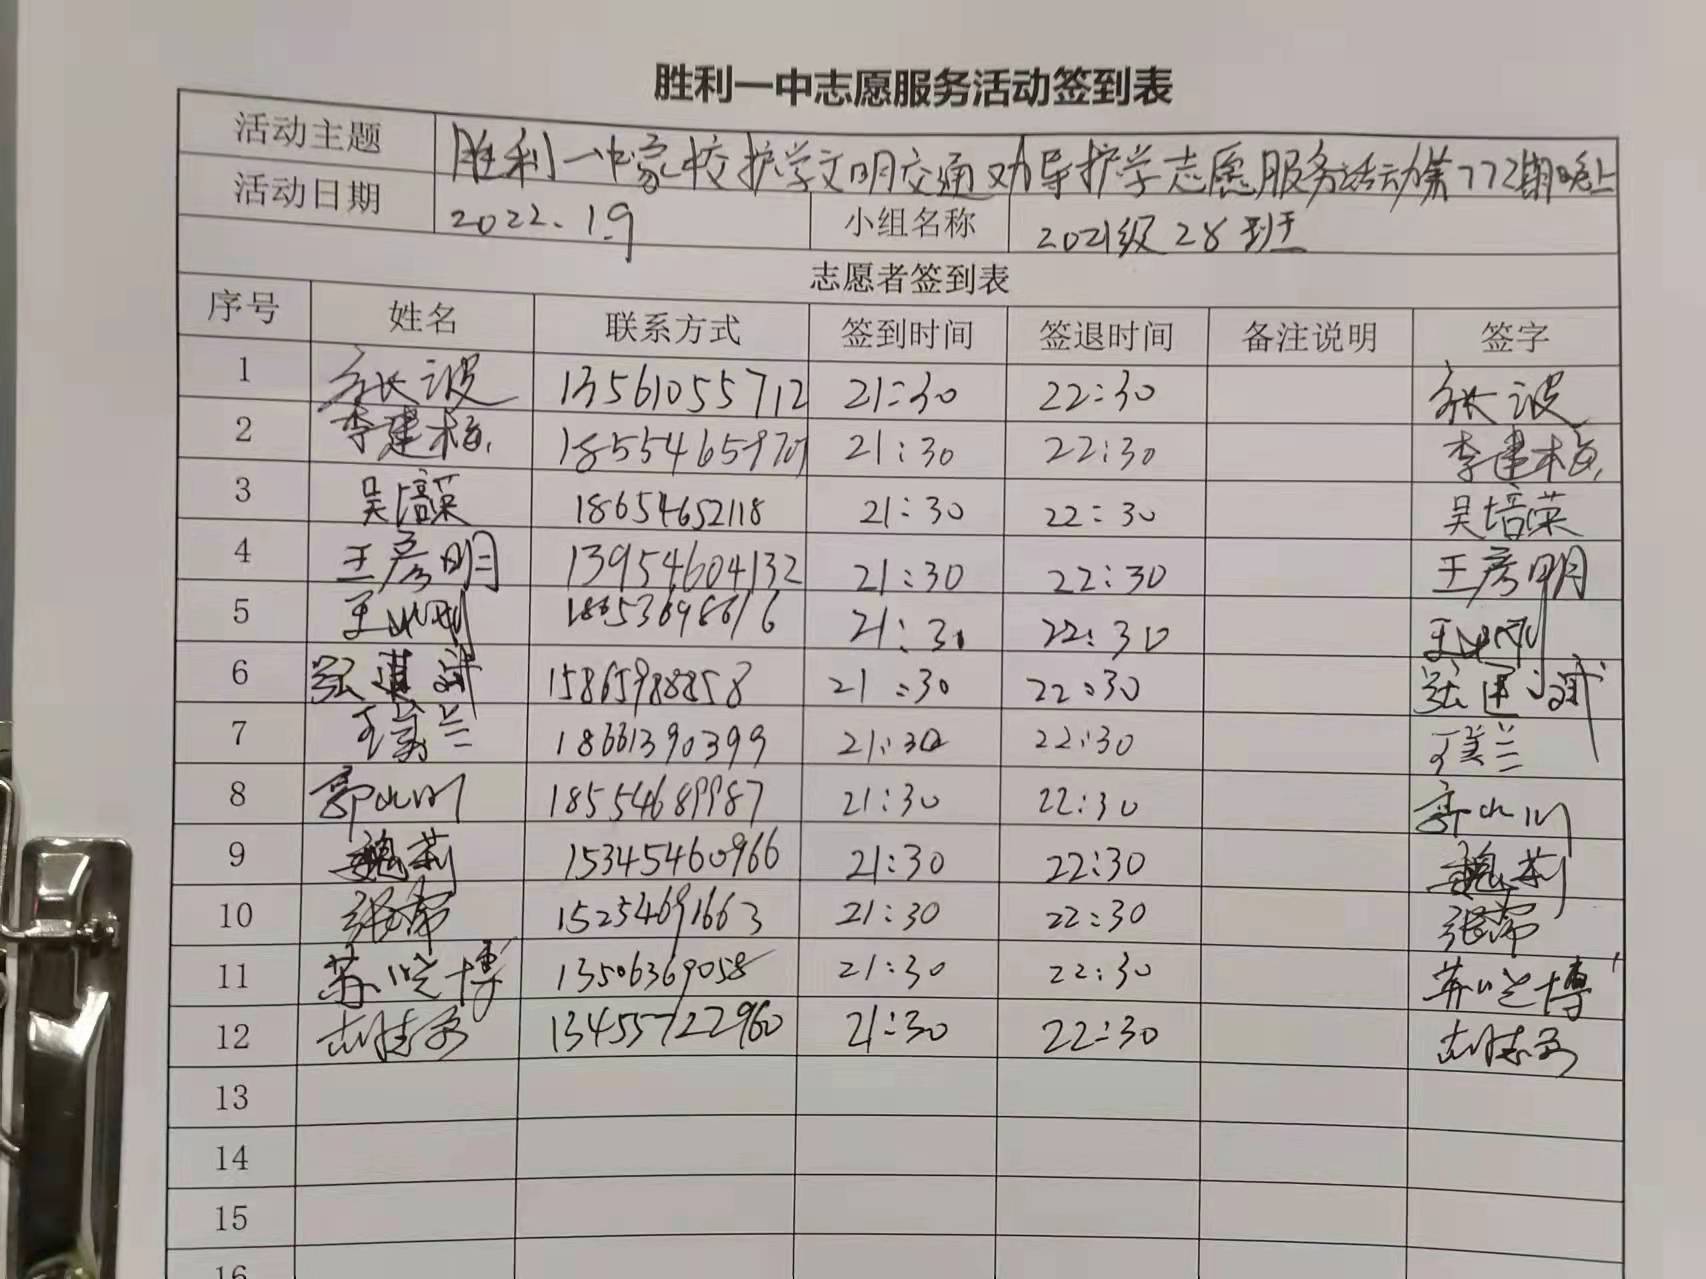 胜利一中志愿服务活动签到表
活动主题 胜利一中家校护学文明交通劝导护学志愿服务活动第772期晚上
活动日期 2022.1.9 小组名称 2021级28班
志愿者签到表
序号 姓名 联系方式 签到时间 签退时间 备注说明 签字
1 张波 13561055712 21:30 22:30 张波
2 李建梅 21:30 22:30 李建梅
3 吴培荣 18654652118 21:30 22:30 吴培荣
4 王彦明 13954604132 21:30 22:30 王彦明
5 21:30 22:30
6 15865988858 21:30 22:30
7 18661390399 21:30 22:30
8 18554689987 21:30 22:30
9 魏莉 15345460966 21:30 22:30 魏莉
10 15254691663 21:30 22:30
11 13506369058 21:30 22:30
12 13455722960 21:30 22:30
13
14
15
16